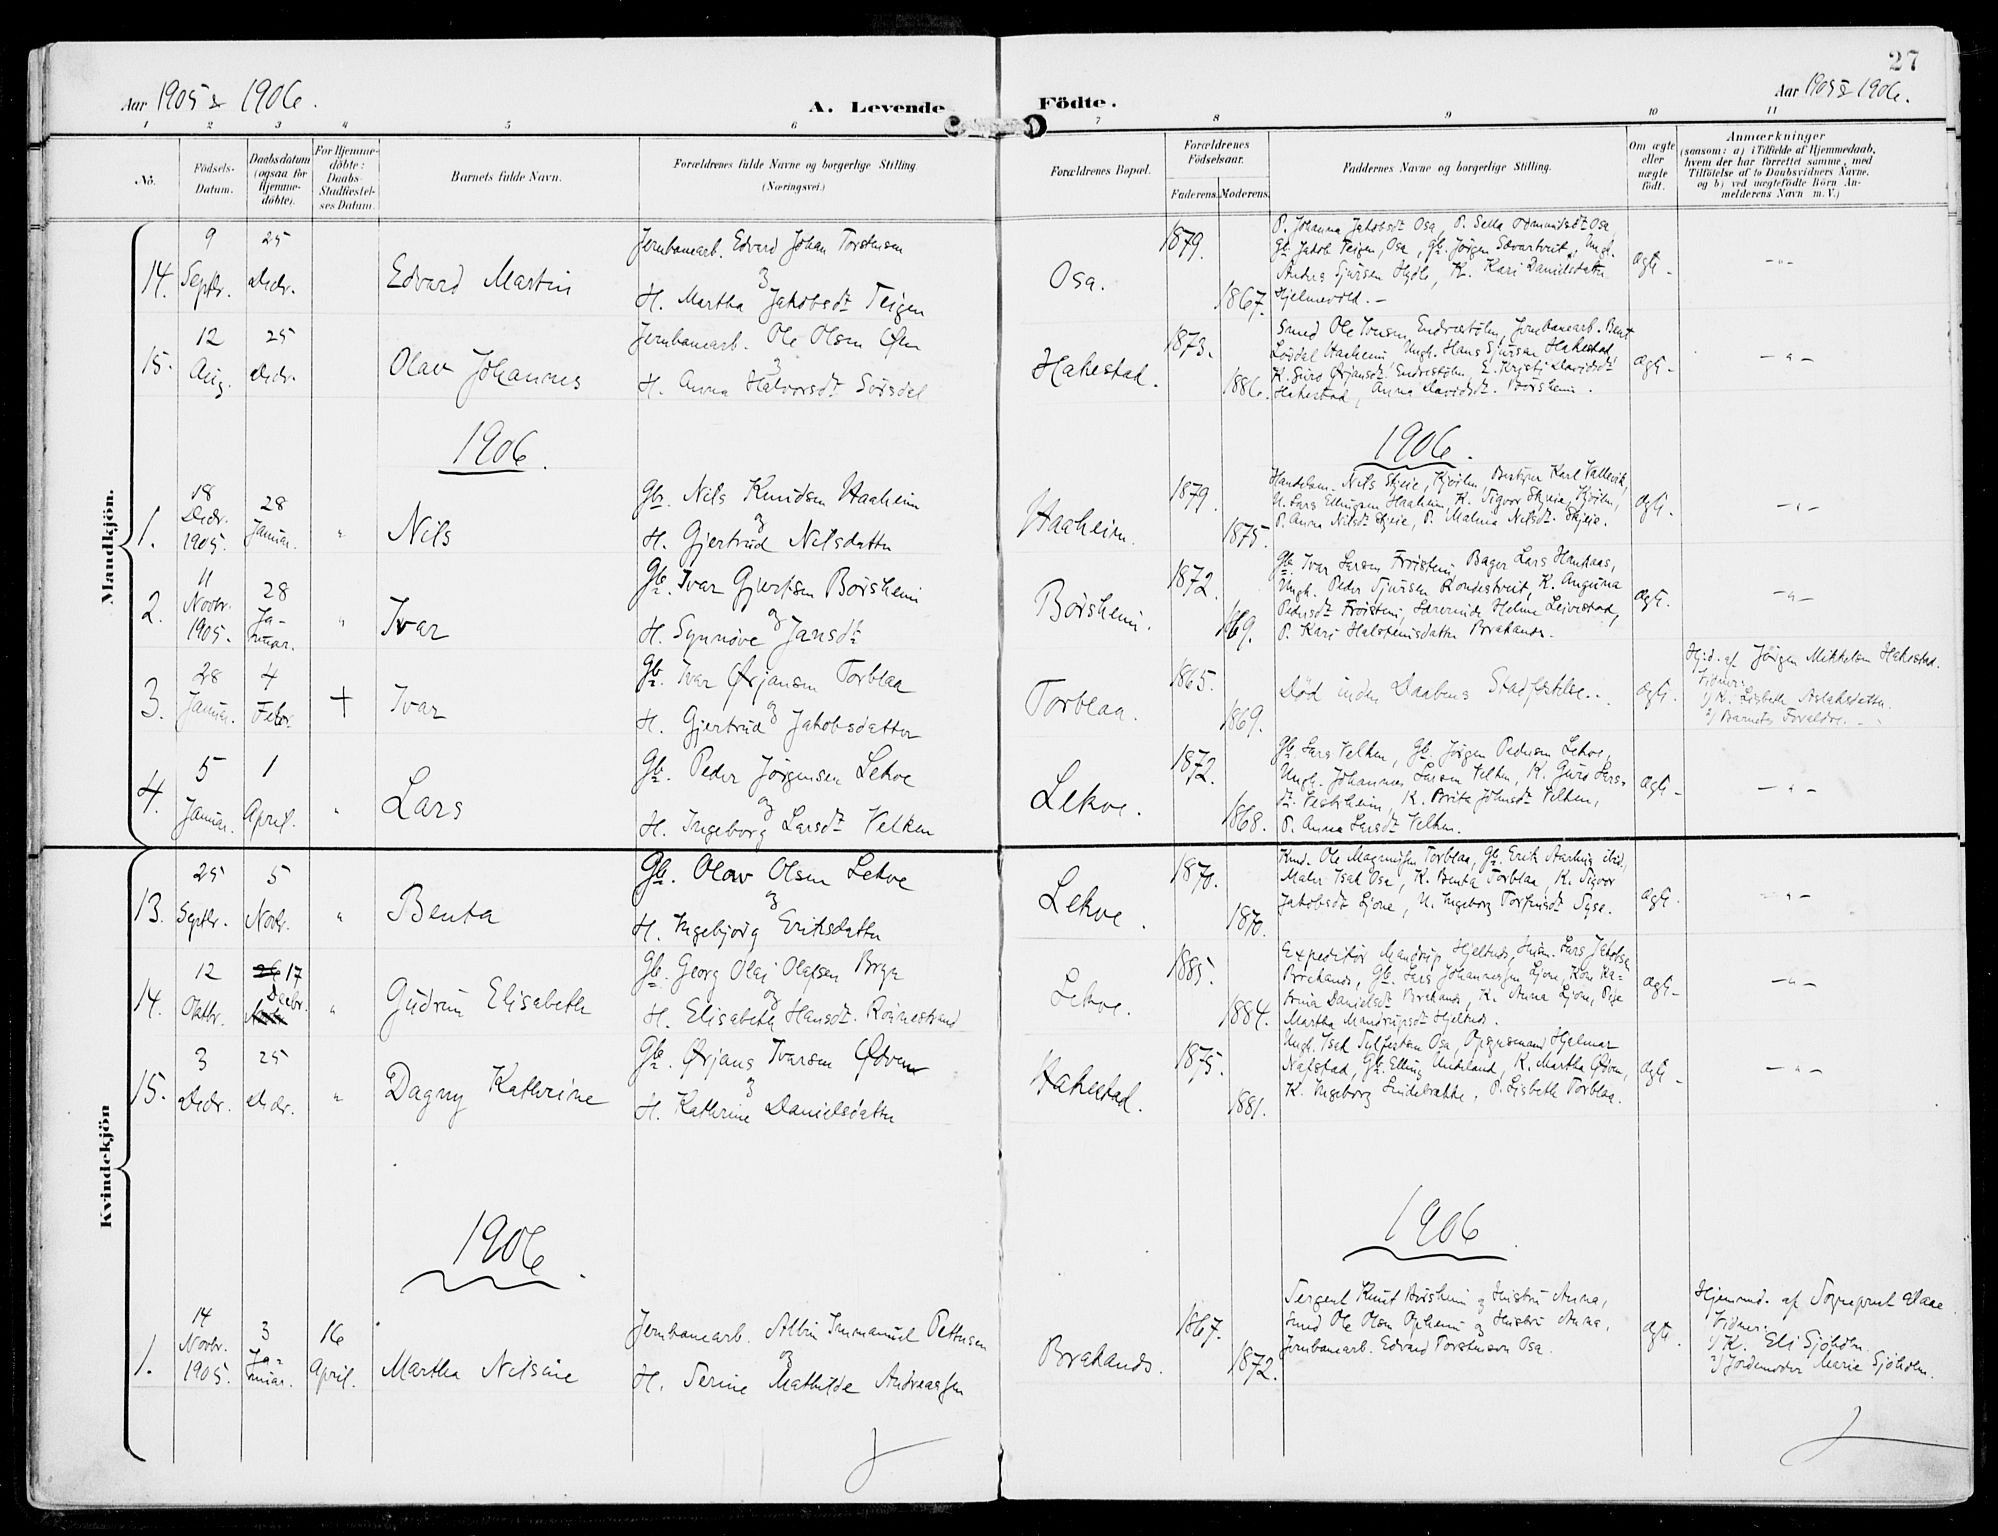 27
Aar 1905 & 1906.
A. Levende Födte.
Aar 1905 & 1906.
1 2 3 4 5 6 7 8 9 10 11
No.
Födsels-Datum.
Daabsdatum (ogsaa for Hjemme-döbte).
For Hjemme-döbte: Daabs-Stadfæstel-ses Datum.
Barnets fulde Navn.
Forældrenes fulde Navne og borgerlige Stilling (Næringsvei.)
Forældrenes Bopæl.
Forældrenes Födselsaar.
Faderens. Moderens.
Faddernes Navne og borgerlige Stilling.
Om ægte eller uægte födt.
Anmærkninger
(saasom: a) i Tilfælde af Hjemmedaab,
hvem der har forrettet samme, med
Tilföielse af to Daabsvidners Navne.
og b) ved uægtefödte Börn An-
melderens Navn m. V.)
Mandkjön.
14. 9 Septbr. 25 Decbr.
Edvard Martin
Jernbanearb. Edvard Johan Torstensen
og
H. Martha Jakobsdt Teigen
Osa.
1879. 1867.
P. Johanna Jakobsdt Osa, P. Sella Odmundsdt Osa,
Gb. Jakob Teigen, Osa, Gb. Jörgen Sævartveit, Ungk.
Anders Sjursen Hylle, K. Kari Danielsdatter
Hjelmevold. -
ægte -
- " -
15. 12 Aug. 25 Decbr.
Olav Johannes
Jernbanearb. Ole Olsen Öen
og
H. Anna Halvorsdt Sörsdel
Hakestad.
1873. 1886.
Smed Ole Jonsen Endrestölen, Jernbanearb. Bent
Haaheim, Ungk. Hans Sjursen Hakestad,
K. Guro Örjansdt Endrestölen, E. Kristi Davidsdt
Hakestad, Anna Davidsdt. Börsheim.
ægte -
- " -
1906.
1906.
1. 18 Decbr. 1905. 28 Januar. "
Nils
Gb. Nils Knudsen Haaheim
og
H. Gjertrud Nilsdatter
Haaheim.
1879. 1875.
Handelsm. Nils Skjeie, Kjöilen, Bestyrer Karl Vallevik,
U. Lars Ellingsen Haaheim, K. Sigvor Skjeie, Kjöilen,
P. Anna Nilsdt Skjeie, P. Malena Nilsdt. Skjeie.
ægte.
- " -
2. 11 Novbr. 1905. 28 Ja-nuar. "
Ivar
Gb. Ivar Gjertsen Börsheim
og
H. Synnöve Jansdt
Börsheim.
1872. 1869.
Gb. Ivar Larsen Fröistein, Bager Lars Hanhaas,
Ungk. Peder Sjursen Rondestveit, K. Angunna
Pedersdt Fröistein, Lærerinde Helene Leivestad,
P. Kari Halsteinsdatter Brakanes.
ægte.
- " -
3. 28 Januar. 4 Febr. +
Ivar
Gb. Ivar Örjansen Torblaa
og
H. Gjertrud Jakobsdatter
Torblaa.
1865. 1869.
Död inden Daabens Stadfæstelse..
ægte -
Hjd. af Jörgen Mikkelsen Hakestad.
Vidner:
1/ K. Lisbeth Aslaksdatter.
2/ Barnets Forældre. -
4. 5 Januar. 1 April. "
Lars
Gb. Peder Jörgensen Lekve
og
H. Ingeborg Larsdt Velken
Lekve.
1872. 1868.
Gb. Lars Velken, Gb. Jörgen Pedersen Lekve,
Ungk. Johannes Larsen Velken, K. Guro Lars-
dt. Vestrheim, K. Brita Johnsdt Velken,
P. Anna Larsdt Velken.
ægte -
- " -
Kvindekjön
13. 25 Septbr. 5 Novbr. "
Benta
Gb. Olav Olsen Lekve
og
H. Ingebjörg Eriksdatter
Lekve.
1870. 1870.
Ole Magnusen Torblaa, Gb. Erik Aarhus ibid,
Maler Isak Osa, K. Benta Torblaa, K. Sigvor
Jakobsdt Ljone, U. Ingeborg Torfinsdt Syse.
ægte.
- " -
14. 12 Oktbr. 17 Decbr. "
Gudrun Elisabeth
Gb. Georg Olai Olafsen Brye
og
H. Elisabeth Hansdt. Roinestrand
Lekve.
1885. 1884.
Expeditör Mandrup Hjeltnes, Lars Jakobsen
Brakanes, Gb. Lars Johannessen Ljone, Kone Ka-
trina Danielsdt Brakanes, K. Anna Ljone, Pige
Martha Mandrupsdt Hjeltnes.
ægte -
- " -
15. 3 Decbr. 25 Decbr. "
Dagny Kathrine
Gb. Örjans Ivarsen Ödven
og
H. Kathrine Danielsdatter
Hakestad.
1875. 1881.
Ungk. Isak Osa, Opsynsmand Hjalmar
Nafstad, Gb. Elling Auteland, K. Martha Ödven,
K. Ingeborg Lindebrekke, P. Lisbeth Torblaa.
ægte -
- " -
1906.
1906.
1. 14 Novbr. 1905. 3 Ja-nuar. 16 April.
Martha Nilsine
Jernbanearb. Albin Immanuel Pettersen
og
H. Serine Mathilde Andreassen
Brakanes.
1867. 1872.
Sergent Knut Börsheim og Hustru Anna,
Smed Ole Olsen Opheim og Hustru Anna,
Jernbanearb. Edvard Torstensen Osa.
ægte.
Hjemmed. af Sogneprest Aaae
Vidner:
1/ K. Eli Sjöholm.
2/ Jordemoder Marie Sjöholm.